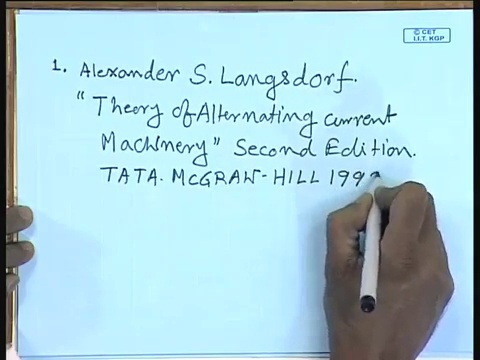 © CET
I.I.T. KGP
1. Alexander S. Langsdorf.
"Theory of Alternating current
Machinery" Second Edition.
TATA. McGRAW-HILL